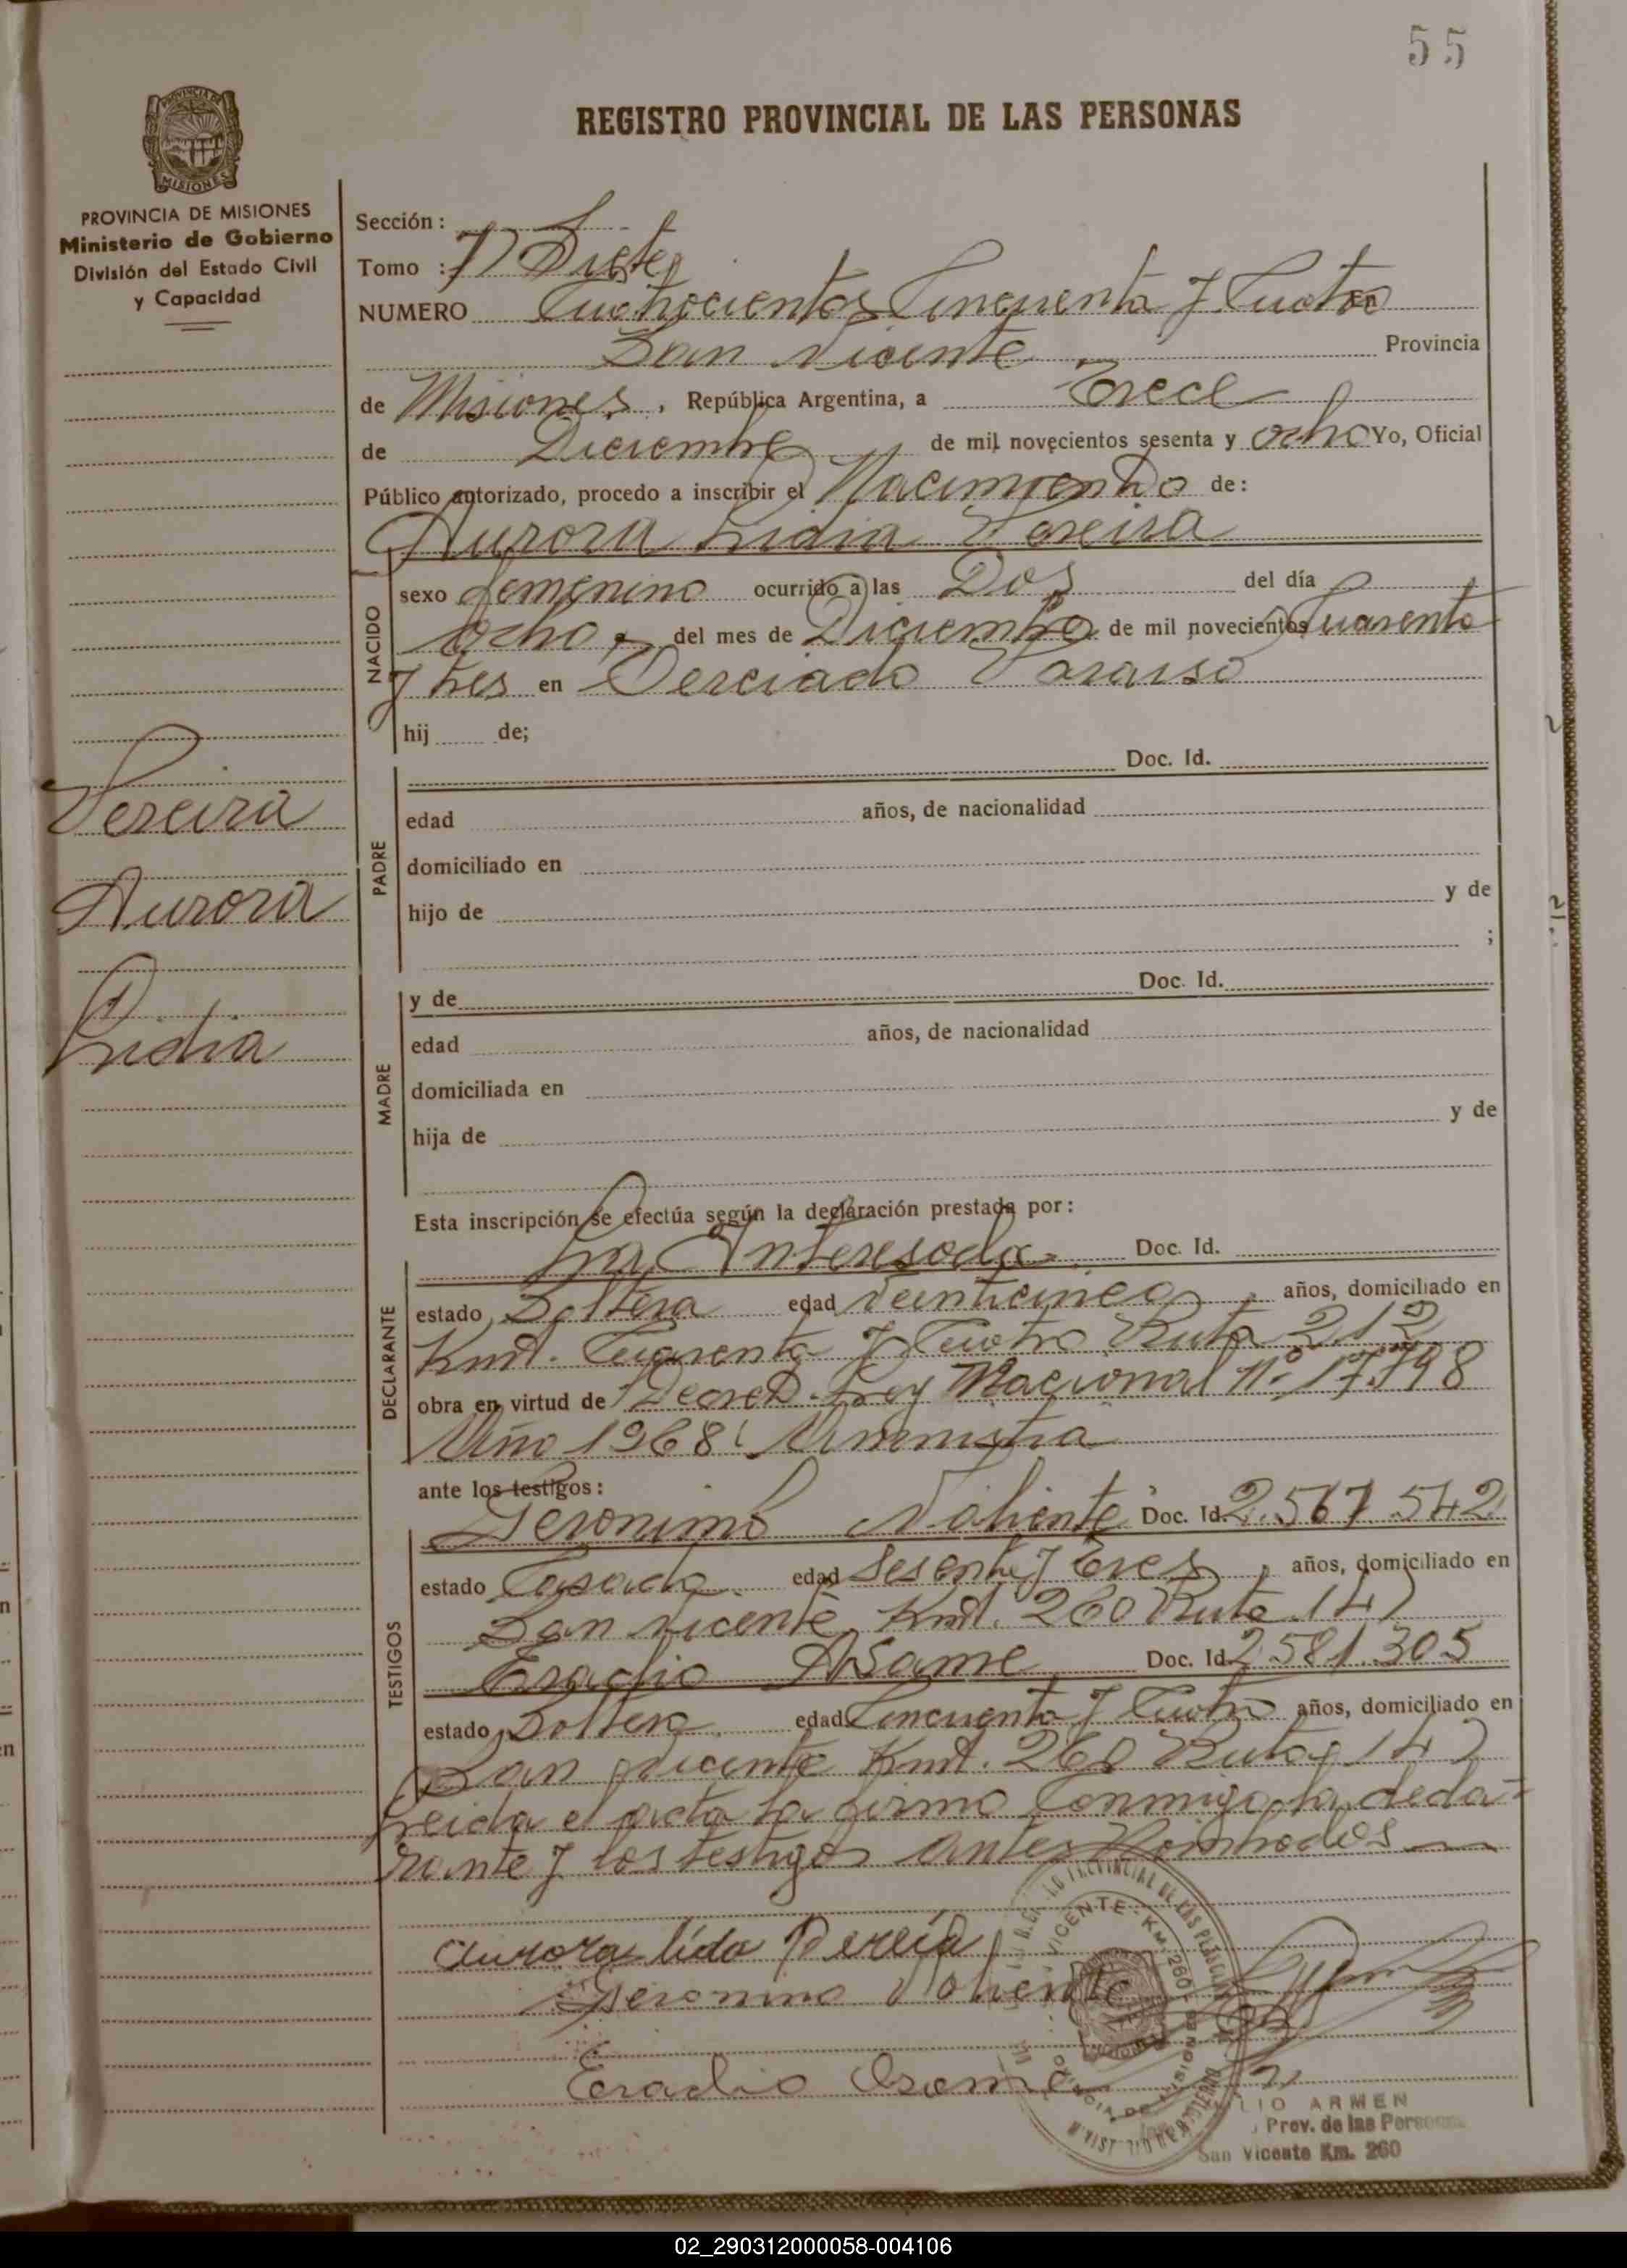 55
REGISTRO PROVINCIAL DE LAS PERSONAS
PROVINCIA DE MISIONES
MISIONES
PROVINCIA DE MISIONES
Ministerio de Gobierno
División del Estado Civil
y Capacidad
Sección:
Tomo : 7) Siete
NUMERO Cuatrocientos Cincuenta y Cuatro en
San Vicente Provincia
de Misiones, República Argentina, a Trece
de Diciembre de mil novecientos sesenta y ocho Yo, Oficial
Público autorizado, procedo a inscribir el Nacimiento de:
Aurora Lidia Pereira
NACIDO
sexo femenino ocurrido a las Dos del día
Ocho, del mes de Diciembre de mil novecientos Cuarenta
y tres en Terciado Paraiso
hij de;
Pereira
Aurora
Lidia
PADRE
Doc. Id.
edad años, de nacionalidad
domiciliado en
hijo de y de
;
MADRE
y de Doc. Id.
edad años, de nacionalidad
domiciliada en
hija de y de
Esta inscripción se efectúa según la declaración prestada por:
DECLARANTE
La Interesada Doc. Id.
estado Soltera edad Veinticinco, años, domiciliado en
Kmt. Cuarenta y Cuatro Ruta 212
obra en virtud de Decreto Ley Nacional Nº 17.798
Año 1968 Amnistia
ante los testigos:
TESTIGOS
Geronimo Valiente Doc. Id. 2.567.542
estado Casado edad Sesenta y Tres, años, domiciliado en
San Vicente Kmt. 260 Ruta 14)
Eradio Doc. Id. 2.581.305
estado Soltero edad Cincuenta y Cuatro años, domiciliado en
San Vicente Kmt. 260 Ruta 14)
Leida el acta la firma conmigo la decla-
rante y los testigos antes Nombrados
Aurora lida
Geronimo Valiente
Eradio
VICENTE - KM. 260
LIO ARMEN
Prov. de las Personas
San Vicente Km. 260
02_290312000058-004106